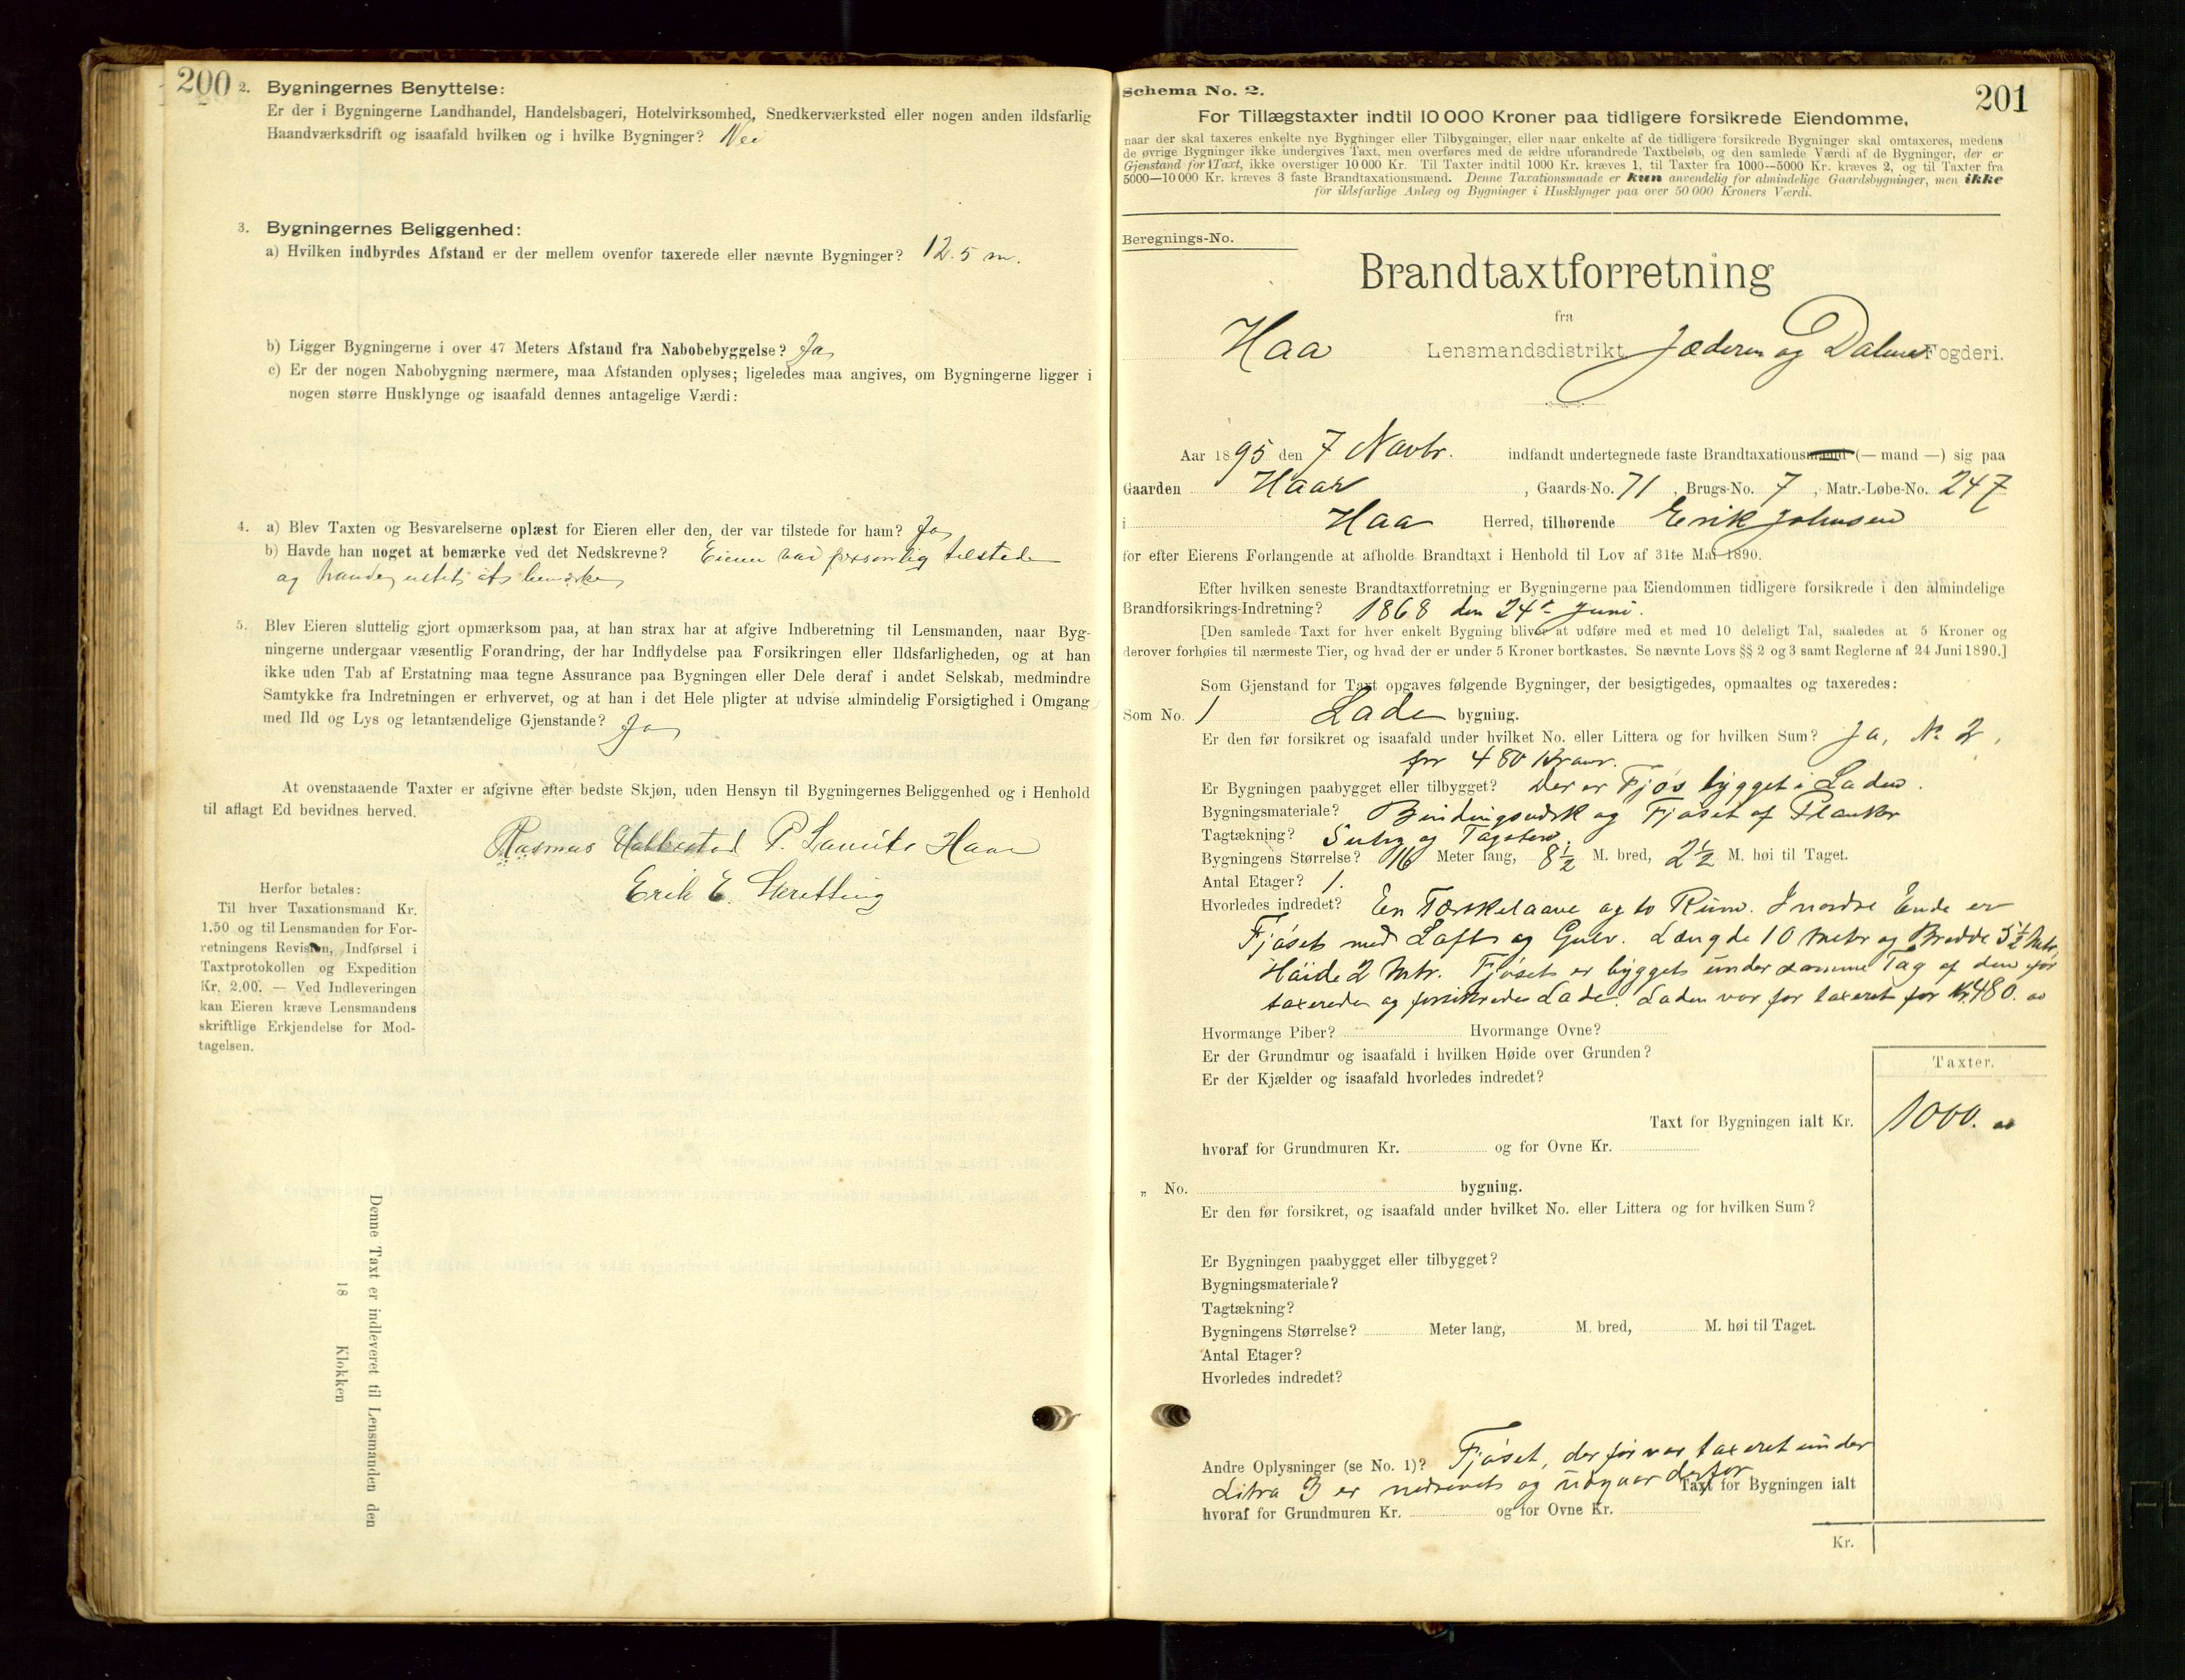 200
2. Bygningernes Benyttelse:
Er der i Bygningerne Landhandel, Handelsbageri, Hotelvirksomhed, Snedkerværksted eller nogen anden ildsfarlig
Haandværksdrift og isaafald hvilken og i hvilke Bygninger? Nei
3. Bygningernes Beliggenhed:
a) Hvilken indbyrdes Afstand er der mellem ovenfor taxerede eller nævnte Bygninger? 12.5 m.
b) Ligger Bygningerne i over 47 Meters Afstand fra Nabobebyggelse? Ja
c) Er der nogen Nabobygning nærmere, maa Afstanden oplyses; ligeledes maa angives, om Bygningerne ligger i
nogen større Husklynge og isaafald dennes antagelige Værdi:
4. a) Blev Taxten og Besvarelserne oplæst for Eieren eller den, der var tilstede for ham? Ja
b) Havde han noget at bemærke ved det Nedskrevne? Eieren var personlig tilstede
og havde intet at bemærke
5. Blev Eieren sluttelig gjort opmærksom paa, at han strax har at afgive Indberetning til Lensmanden, naar Byg-
ningerne undergaar væsentlig Forandring, der har Indflydelse paa Forsikringen eller Ildsfarligheden, og at han
ikke uden Tab af Erstatning maa tegne Assurance paa Bygningen eller Dele deraf i andet Selskab, medmindre
Samtykke fra Indretningen er erhvervet, og at han i det Hele pligter at udvise almindelig Forsigtighed i Omgang
med Ild og Lys og letantændelige Gjenstande? Ja
At ovenstaaende Taxter er afgivne efter bedste Skjøn, uden Hensyn til Bygningernes Beliggenhed og i Henhold
til aflagt Ed bevidnes herved.
Rasmus P. Haar
Erik E. Skretting
Herfor betales:
Til hver Taxationsmand Kr.
1.50 og til Lensmanden for For-
retningens Revision, Indførsel i
Taxtprotokollen og Expedition
Kr. 2.00. — Ved Indleveringen
kan Eieren kræve Lensmandens
skriftlige Erkjendelse for Mod-
tagelsen.
Denne Taxt er indleveret til Lensmanden den
18 Klokken
201
Schema No. 2.
For Tillægstaxter indtil 10 000 Kroner paa tidligere forsikrede Eiendomme,
naar der skal taxeres enkelte nye Bygninger eller Tilbygninger, eller naar enkelte af de tidligere forsikrede Bygninger skal omtaxeres, medens
de øvrige Bygninger ikke undergives Taxt, men overføres med de ældre uforandrede Taxtbeløb, og den samlede Værdi af de Bygninger, der er
Gjenstand for Taxt, ikke overstiger 10 000 Kr. Til Taxter indtil 1000 Kr. kræves 1, til Taxter fra 1000—5000 Kr. kræves 2, og til Taxter fra
5000—10 000 Kr. kræves 3 faste Brandtaxationsmænd. Denne Taxationsmaade er kun anvendelig for almindelige Gaardsbygninger, men ikke
for ildsfarlige Anlæg og Bygninger i Husklynger paa over 50 000 Kroners Værdi.
Beregnings-No.
Brandtaxtforretning
fra
Haa Lensmandsdistrikt Jæderen og Dalene Fogderi.
Aar 1895 den 7 Novbr. indfandt undertegnede faste Brandtaxationsmænd (— mand —) sig paa
Gaarden Haar, Gaards-No. 71, Brugs-No. 7, Matr.-Løbe-No. 247
i Haa Herred, tilhørende Erik Johnsen
for efter Eierens Forlangende at afholde Brandtaxt i Henhold til Lov af 31te Mai 1890.
Efter hvilken seneste Brandtaxtforretning er Bygningerne paa Eiendommen tidligere forsikrede i den almindelige
Brandforsikrings-Indretning? 1868 den 24de Juni.
[Den samlede Taxt for hver enkelt Bygning bliver at udføre med et med 10 deleligt Tal, saaledes at 5 Kroner og
derover forhøies til nærmeste Tier, og hvad der er under 5 Kroner bortkastes. Se nævnte Lovs §§ 2 og 3 samt Reglerne af 24 Juni 1890.]
Som Gjenstand for Taxt opgaves følgende Bygninger, der besigtigedes, opmaaltes og taxeredes:
Som No. 1 Lade bygning.
Er den før forsikret og isaafald under hvilket No. eller Littera og for hvilken Sum? Ja, No 2,
for 480 Kroner.
Er Bygningen paabygget eller tilbygget? Der er Fjøs bygget i Laden.
Bygningsmateriale? Bindingsværk og Fjøset af Planker
Tagtækning? og Tagsten.
Bygningens Størrelse? 16 Meter lang, 8½ M. bred, 2½ M. høi til Taget.
Antal Etager? 1.
Hvorledes indredet? En Tærskelaave og to Rum. I nordre Ende er
Fjøset med Loft og Gulv. Længde 10 Meter og Bredde 5½ Metr,
Høide 2 Mtr. Fjøset er bygget under samme Tag af den før
taxerede og forsikrede Lade. Laden var før taxeret for Kr. 480. 00
Hvormange Piber? Hvormange Ovne?
Er der Grundmur og isaafald i hvilken Høide over Grunden?
Er der Kjælder og isaafald hvorledes indredet?
Taxter.
Taxt for Bygningen ialt Kr. 1000. 00
hvoraf for Grundmuren Kr. og for Ovne Kr.
„ No. bygning.
Er den før forsikret, og isaafald under hvilket No. eller Littera og for hvilken Sum?
Er Bygningen paabygget eller tilbygget?
Bygningsmateriale?
Tagtækning?
Bygningens Størrelse? Meter lang, M. bred, M. høi til Taget.
Antal Etager?
Hvorledes indredet?
Andre Oplysninger (se No. 1)? Fjøset, der før var taxeret under
Litra 3 er nedrevet og udgaar derfor Taxt for Bygningen ialt
hvoraf for Grundmuren Kr. og for Ovne Kr.
Kr.